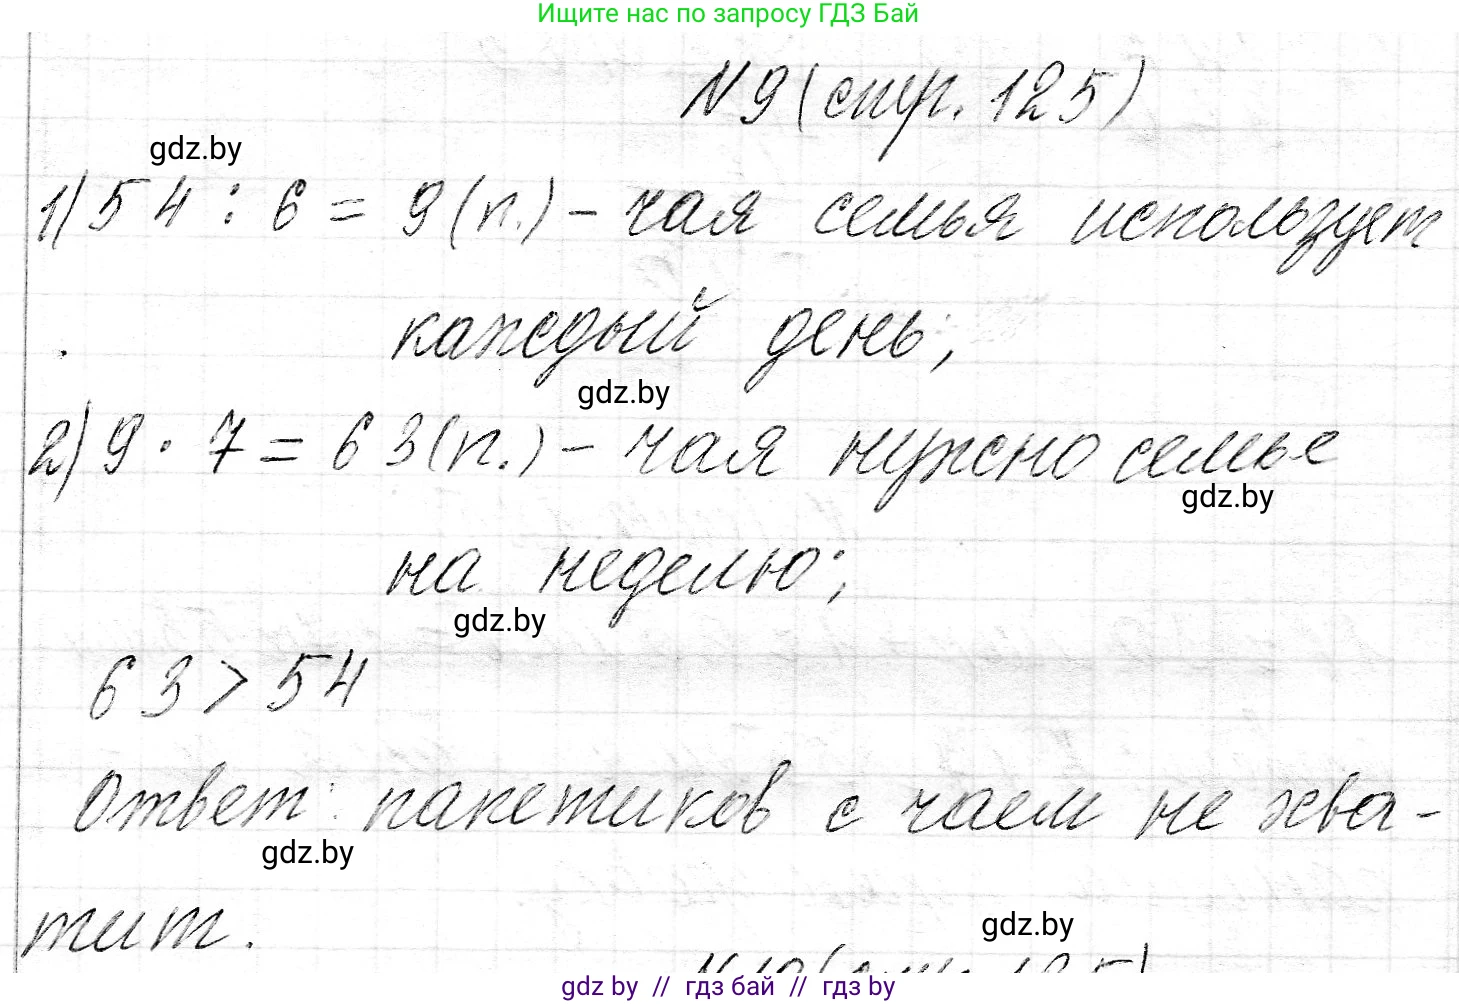 Ищите нас по запросу ГДЗ Бай
N 9 (стр. 125)
gdz.by
1) 54 : 6 = 9 (п.) - чая семья использует
каждый день;
gdz.by
2) 9 · 7 = 63 (п.) - чая нужно семье
gdz.by
на неделю;
gdz.by
63 > 54
Ответ: пакетиков с чаем не хва-
gdz.by
тит.
gdz.by
N 10 (стр. 125)
gdz by // гдз бай // гдз by